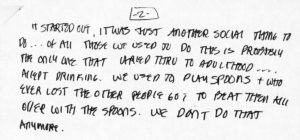 -2-
IT STARTED OUT, IT WAS JUST ANOTHER SOCIAL THING TO
DO... OF ALL THOSE WE USED TO DO THIS IS PROBABLY
THE ONLY ONE THAT CARRIED THRU TO ADULTHOOD....
EXCEPT DRINKING. WE USED TO PLAY SPOONS + WHO
EVER LOST THE OTHER PEOPLE GOT TO BEAT THEM ALL
OVER WITH THE SPOONS. WE DON'T DO THAT
ANYMORE.